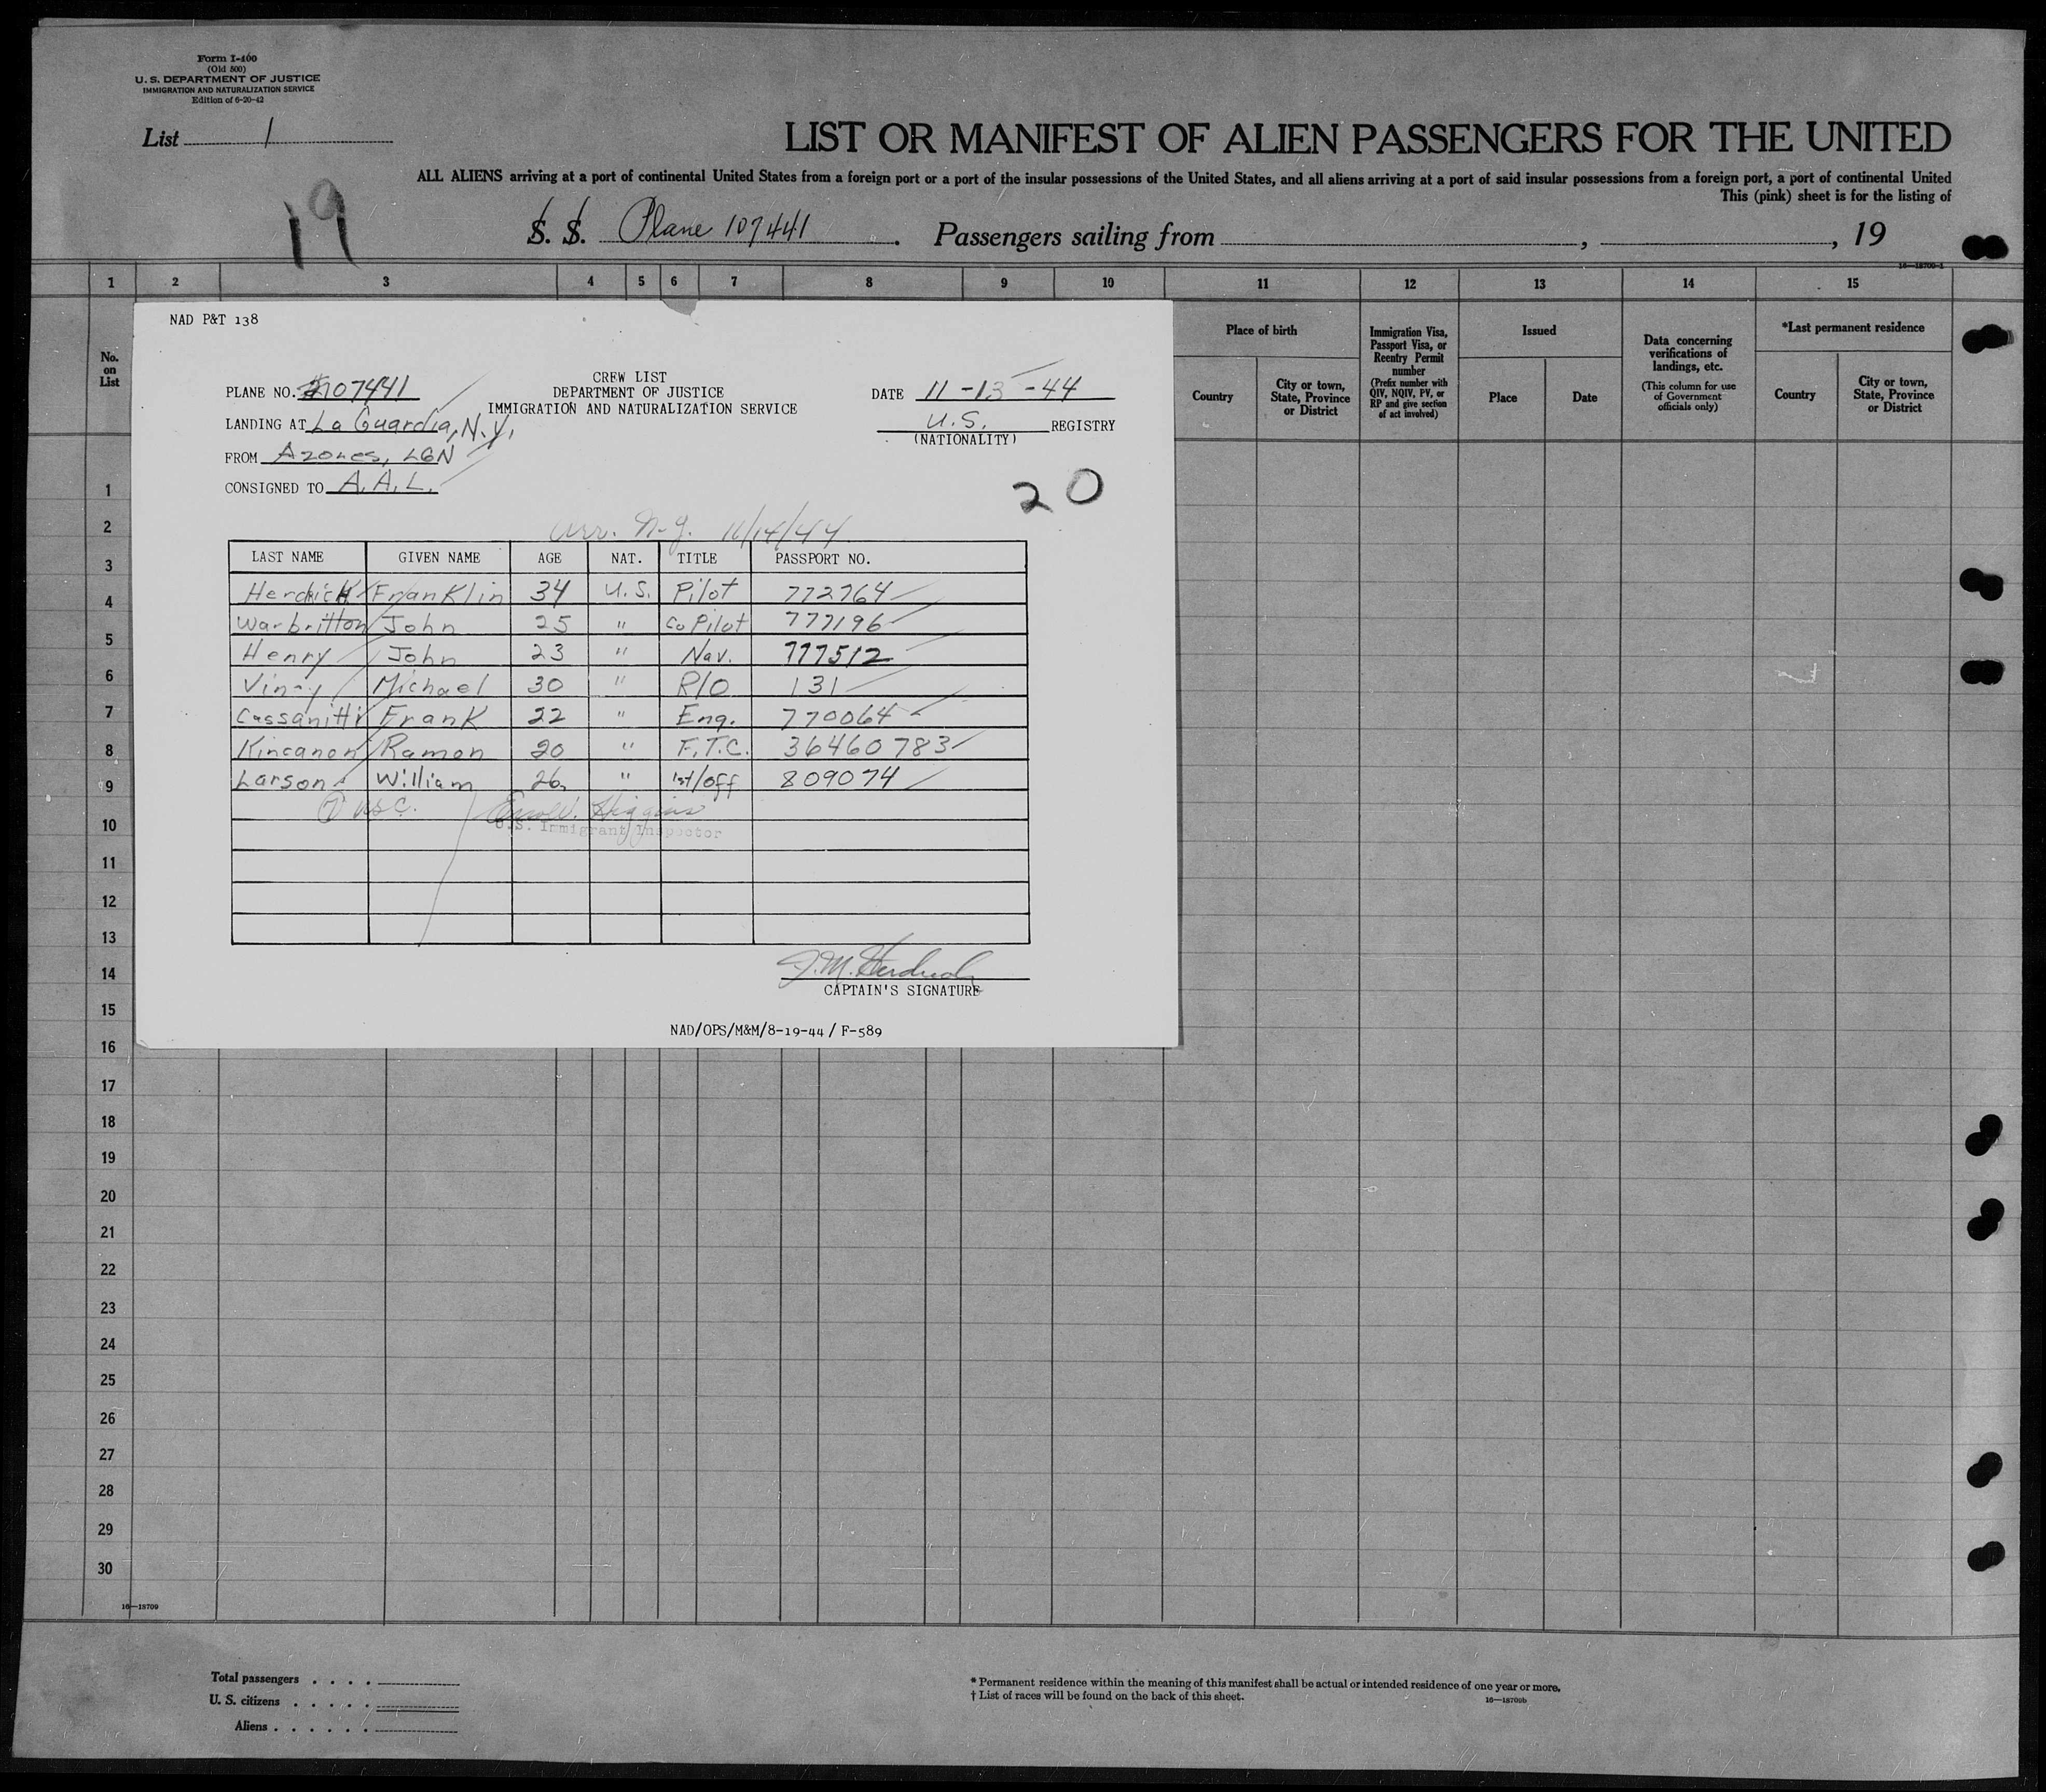 Form I-400
(Old 500)
U. S. DEPARTMENT OF JUSTICE
IMMIGRATION AND NATURALIZATION SERVICE
Edition of 6-20-42
List 1
LIST OR MANIFEST OF ALIEN PASSENGERS FOR THE UNITED
ALL ALIENS arriving at a port of continental United States from a foreign port or a port of the insular possessions of the United States, and all aliens arriving at a port of said insular possessions from a foreign port, a port of continental United
This (pink) sheet is for the listing of
19
S. S. Plane 107441. Passengers sailing from , , 19
1 2 3 4 5 6 7 8 9 10 11 12 13 14 15
No. on List
Place of birth
Country
City or town, State, Province or District
Immigration Visa, Passport Visa, or Reentry Permit number
(Prefix number with QIV, NQIV, PV, or RP and give section of act involved)
Issued
Place
Date
Data concerning verifications of landings, etc.
(This column for use of Government officials only)
*Last permanent residence
Country
City or town, State, Province or District
NAD P&T 138
CREW LIST
DEPARTMENT OF JUSTICE
IMMIGRATION AND NATURALIZATION SERVICE
PLANE NO. #107441
DATE 11-13-44
LANDING AT La Guardia, N.Y.
U.S. REGISTRY
(NATIONALITY)
FROM Azores, LGN
CONSIGNED TO A.A.L.
20
arr. N.Y. 11/14/44
LAST NAME GIVEN NAME AGE NAT. TITLE PASSPORT NO.
Herdrich Franklin 34 U.S. Pilot 772764
Warbritton John 25 " Co Pilot 777196
Henry John 23 " Nav. 777512
Michael 30 " R/O 131
Cassanitti Frank 22 " Eng. 770064
Kincanon Ramon 20 " F.T.C. 36460783
Larson William 26 " 1st/Off 809074
7 USC. Higgins
U.S. Immigrant Inspector
CAPTAIN'S SIGNATURE
NAD/OPS/M&M/8-19-44 / F-589
1
2
3
4
5
6
7
8
9
10
11
12
13
14
15
16
17
18
19
20
21
22
23
24
25
26
27
28
29
30
16—18709
Total passengers
U. S. citizens
Aliens
* Permanent residence within the meaning of this manifest shall be actual or intended residence of one year or more.
† List of races will be found on the back of this sheet.
16—18709b